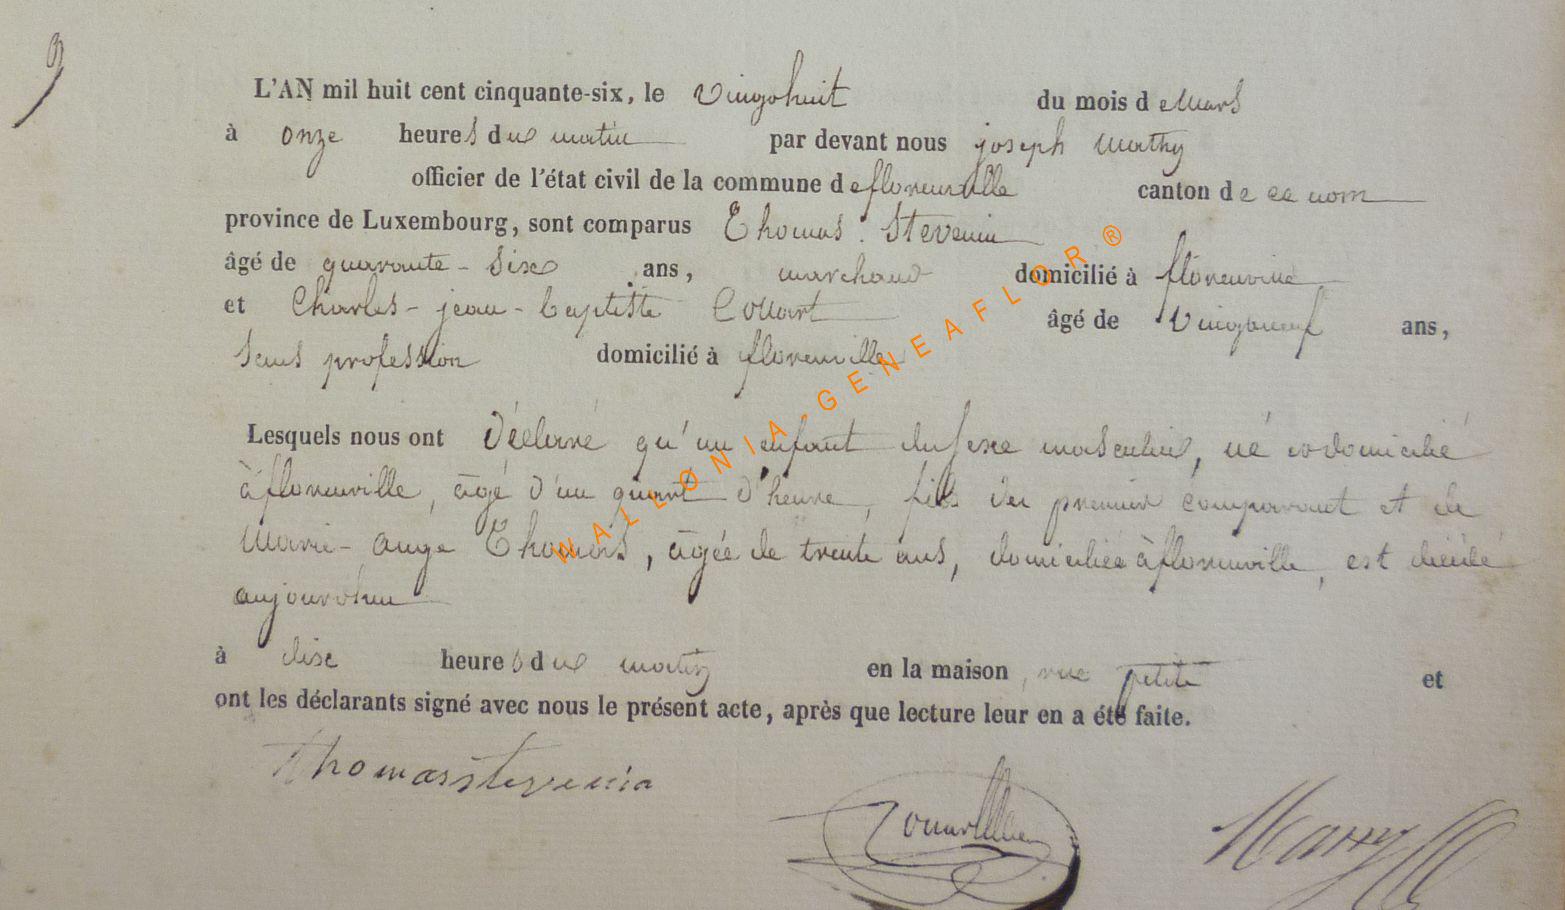 9
L'AN mil huit cent cinquante-six, le vingt huit du mois de Mars
à onze heures du matin par devant nous joseph Mathy
officier de l'état civil de la commune de florenville canton de ce nom
province de Luxembourg, sont comparus Thomas Stevenin
âgé de quarante-Six ans, marchand domicilié à florenville
et Charles-jean-baptiste Collart âgé de vingt neuf ans,
Sans profession domicilié à florenville
Lesquels nous ont déclaré qu'un enfant du Sexe masculin, né et domicilié
à florenville, âgé d'un quart d'heure, fils du premier comparant et de
Marie-ange Thomas, âgée de trente ans, domiciliée à florenville, est décédé
aujourd'hui
à dix heures du matin en la maison, rue petite et
ont les déclarants signé avec nous le présent acte, après que lecture leur en a été faite.
Thomas stevenin
WALLONIA-GENEAFLOR®